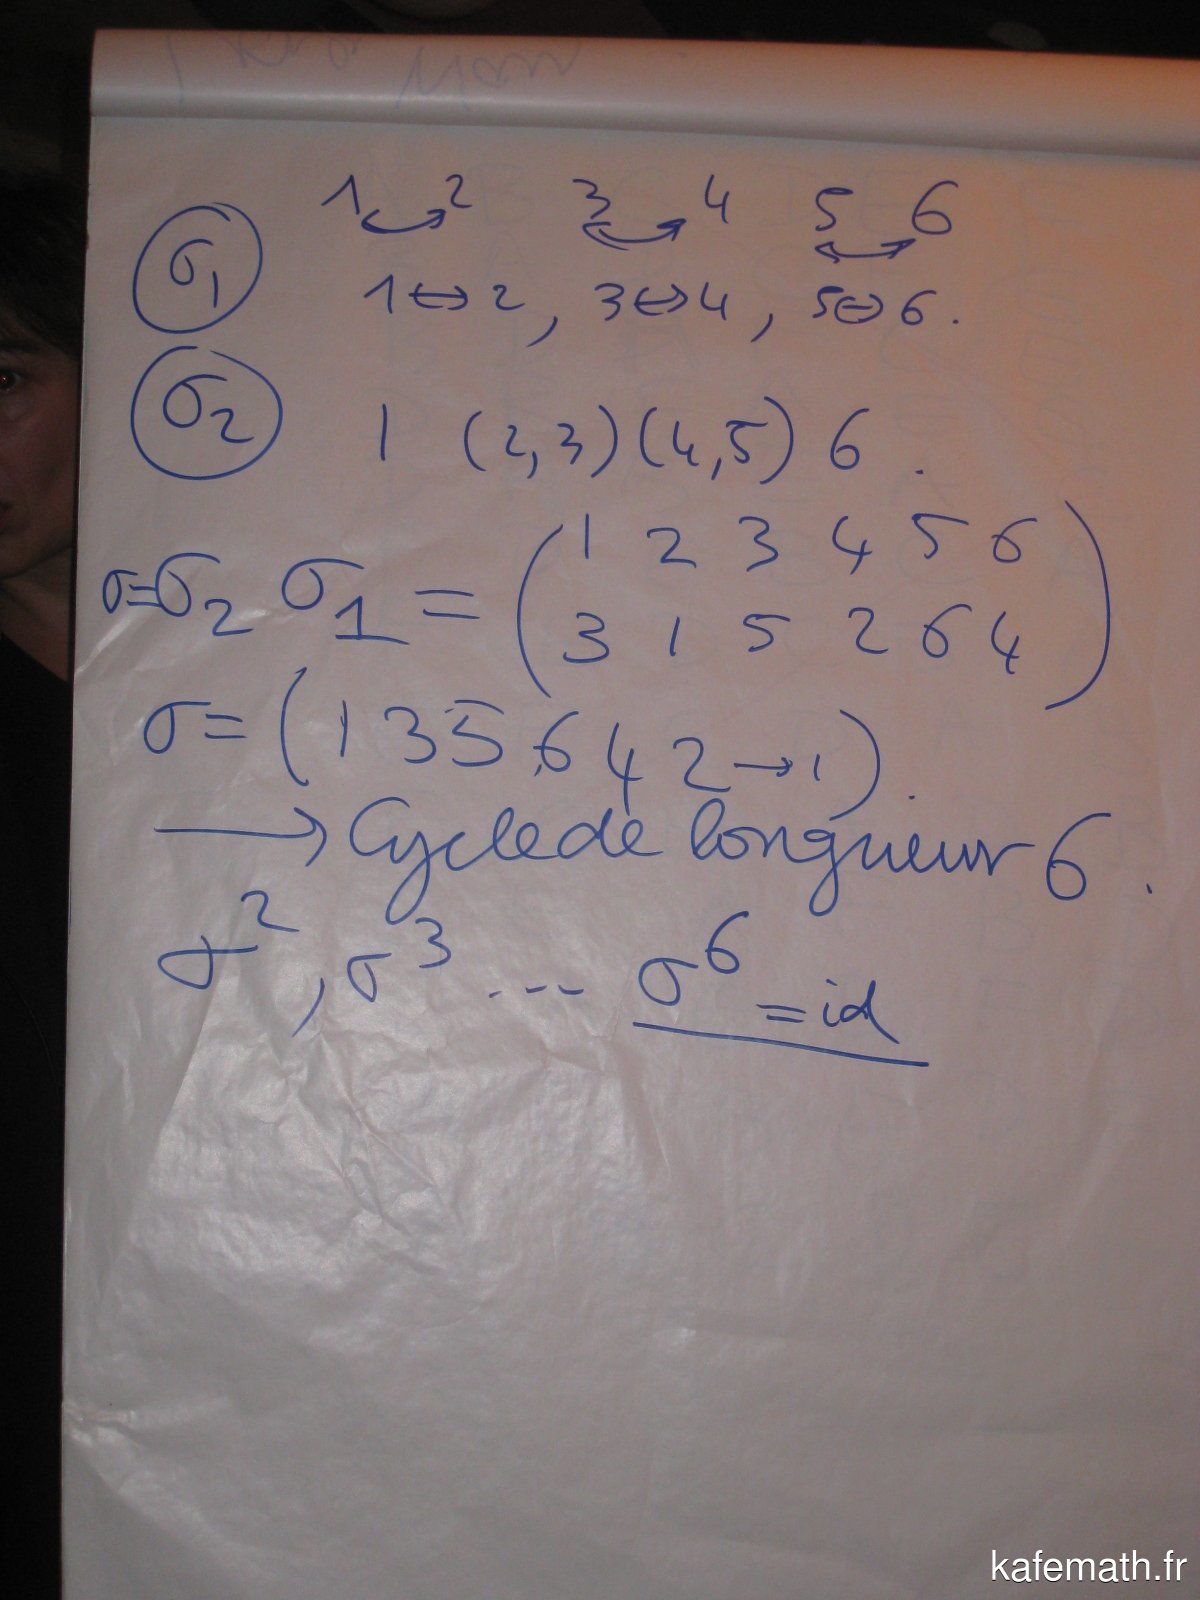 1 2 3 4 5 6
σ₁ 1↔2, 3↔4, 5↔6.
σ₂ 1 (2,3)(4,5) 6.
σ=σ₂ σ₁ = (1 2 3 4 5 6
3 1 5 2 6 4)
σ= (1 3 5 6 4 2→1).
→ Cycle de longueur 6.
σ², σ³ --- σ⁶ = id
kafemath.fr